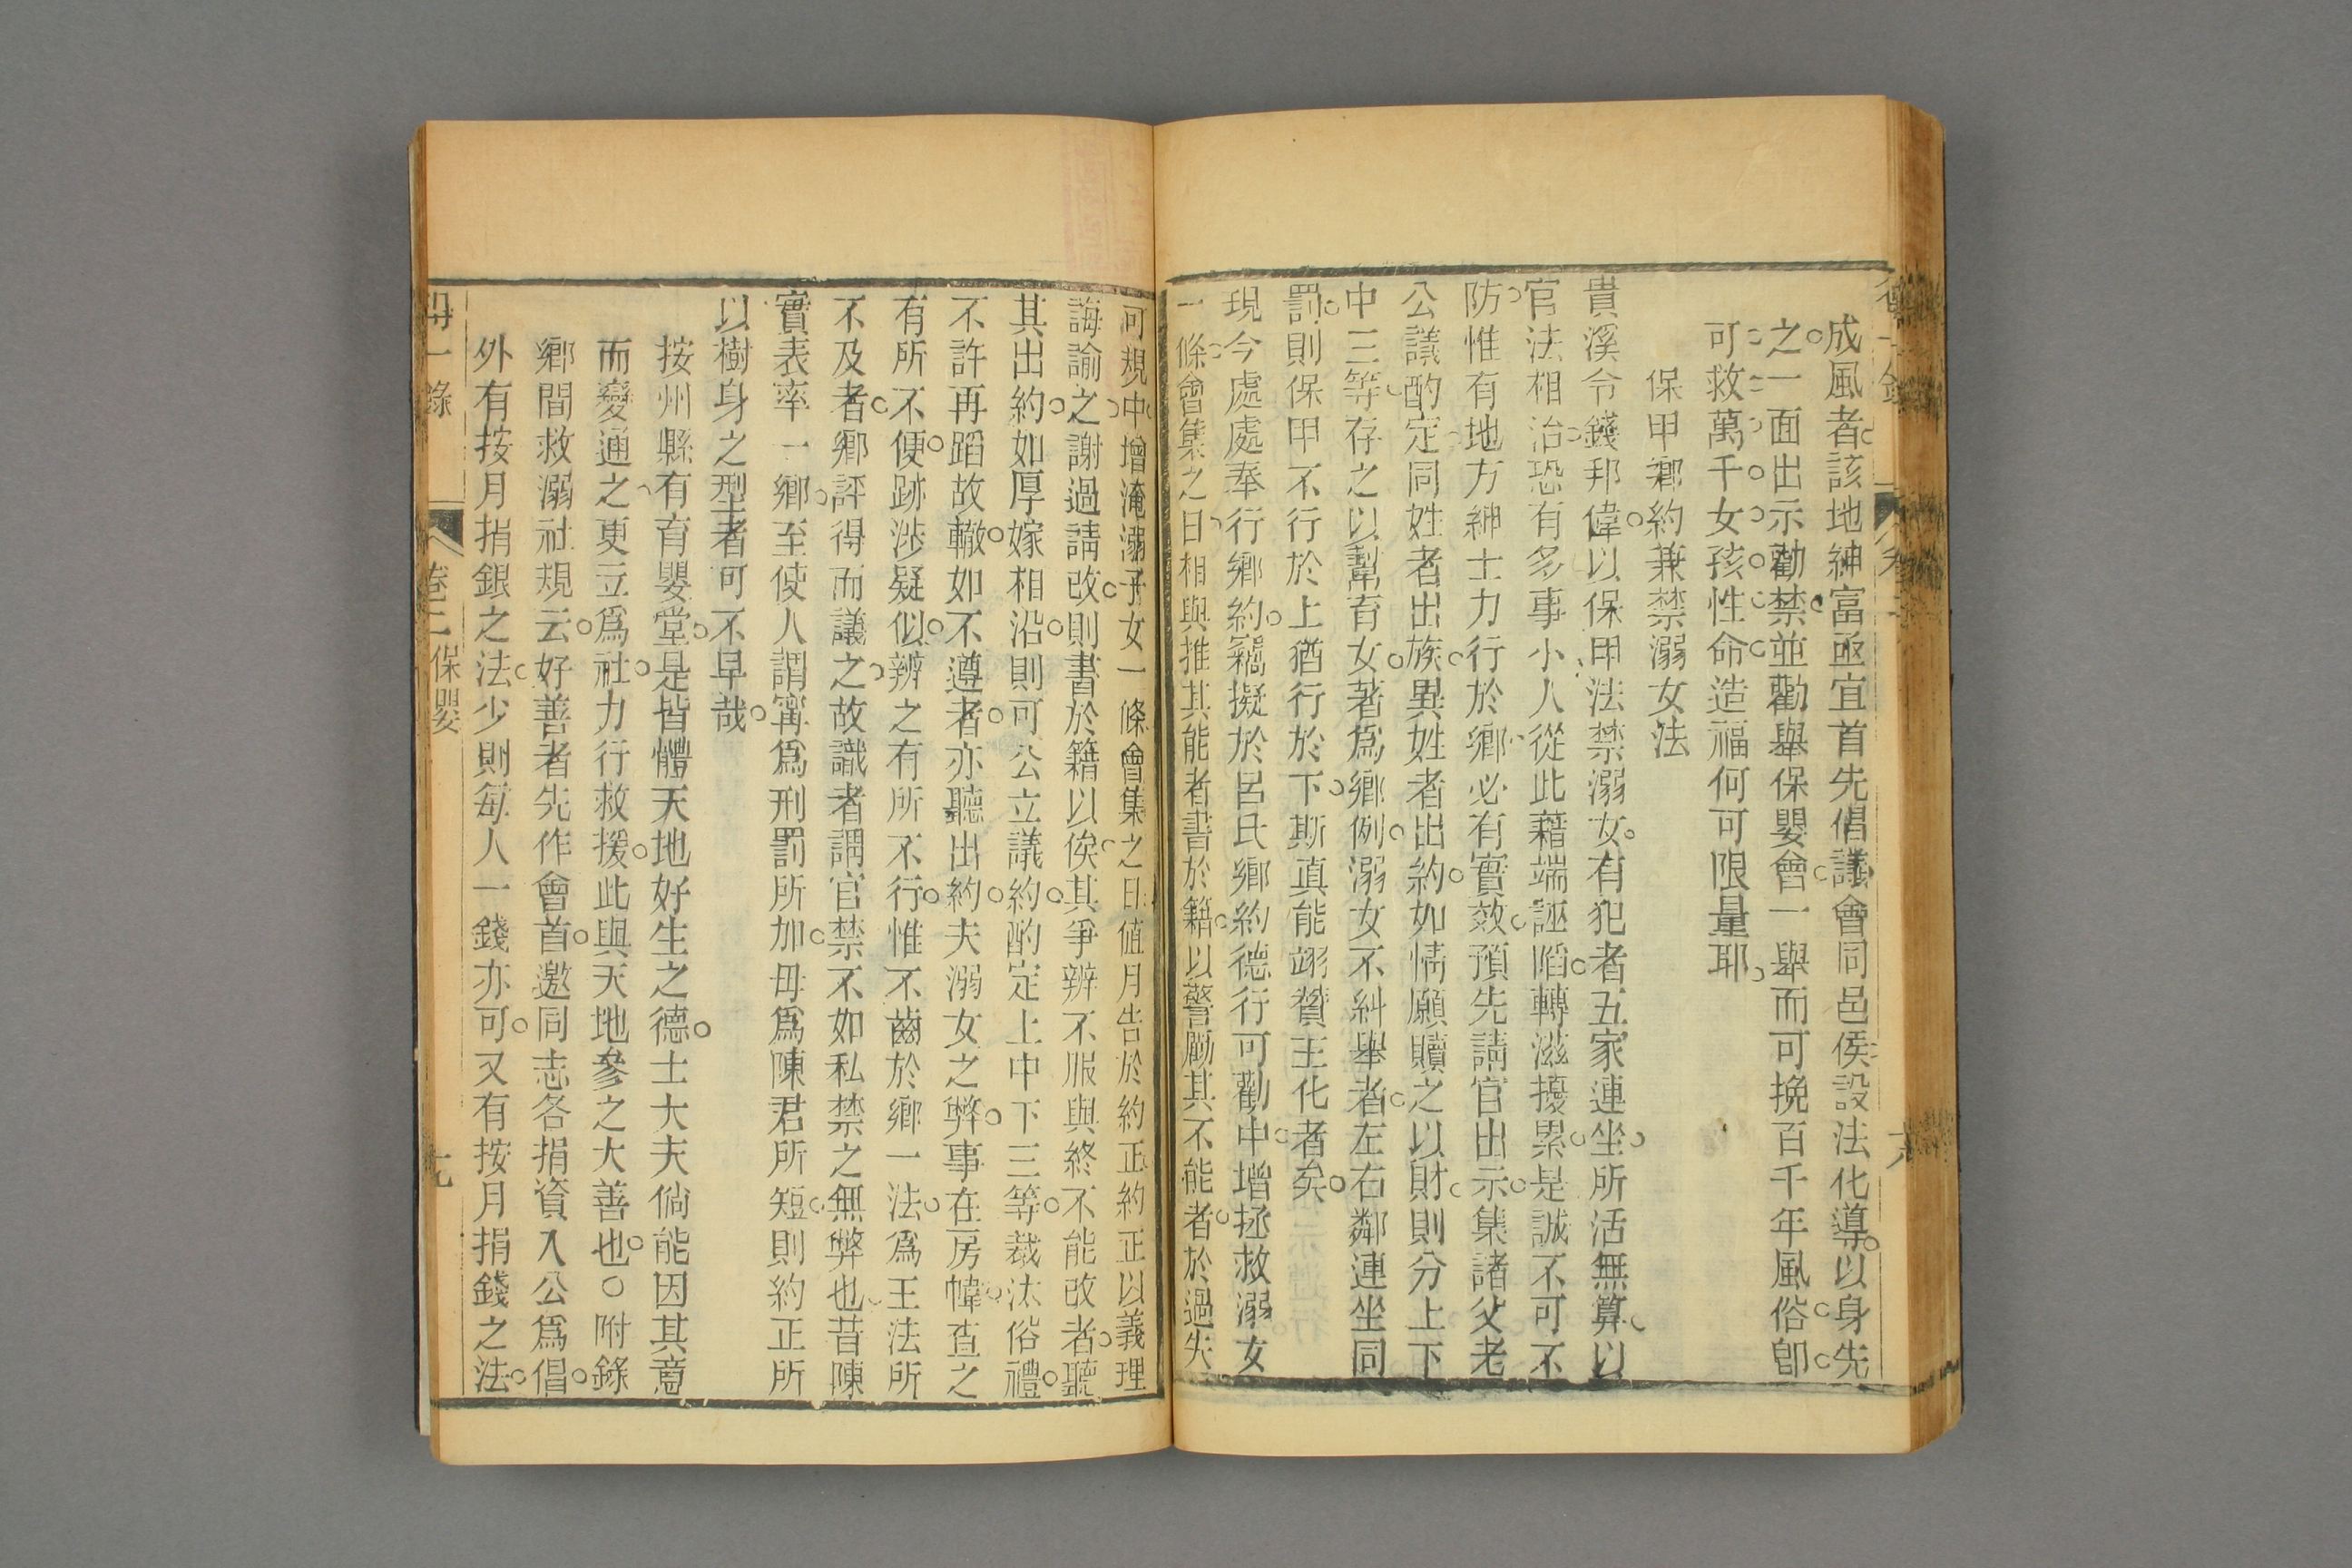 成風者該地紳富亟宜首先倡議會同邑侯設法化導以身先
之一面出示勸禁並勸舉保嬰會一舉而可挽百千年風俗卽
可救萬千女孩性命造福何可限量耶
保甲鄉約兼禁溺女法
貴溪令錢邦偉以保甲法禁溺女有犯者五家連坐所活無算以
官法相治恐有多事小人從此藉端誣陷轉滋擾累是誠不可不
防惟有地方紳士力行於鄉必有實效預先請官出示集諸父老
公議酌定同姓者出族異姓者出約如情願贖之以財則分上下
中三等存之以幫育女著爲鄉例溺女不糾舉者左右鄰連坐同
罰則保甲不行於上猶行於下斯眞能翊贊王化者矣
現今處處奉行鄉約竊擬於呂氏鄉約德行可勸中增拯救溺女
一條會集之日相與推其能者書於籍以警勵其不能者於過失
可規中增淹溺子女一條會集之日値月告於約正約正以義理
誨諭之謝過請改則書於籍以俟其爭辨不服與終不能改者聽
其出約如厚嫁相沿則可公立議約酌定上中下三等裁汰俗禮
不許再蹈故轍如不遵者亦聽出約夫溺女之弊事在房幃查之
有所不便跡涉疑似辨之有所不行惟不齒於鄉一法爲王法所
不及者鄉評得而議之故識者謂官禁不如私禁之無弊也昔陳
實表率一鄉至使人謂寗爲刑罰所加毋爲陳君所短則約正所
以樹身之型者可不早哉
按州縣有育嬰堂是皆體天地好生之德士大夫倘能因其意
而變通之更立爲社力行救援此與天地參之大善也○附錄
鄉間救溺社規云好善者先作會首邀同志各捐資入公爲倡
外有按月捐銀之法少則每人一錢亦可又有按月捐錢之法
一錄
卷二 保嬰
九